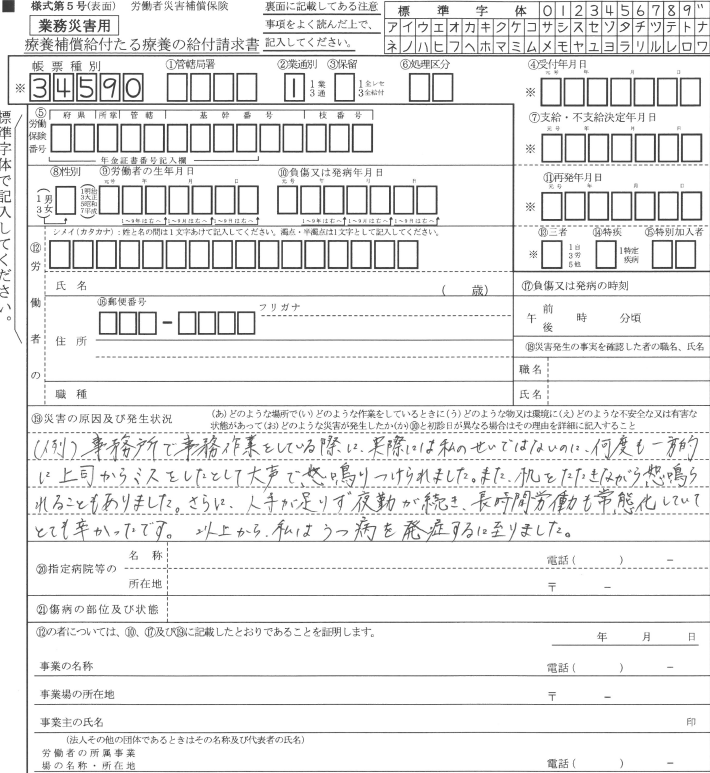 ■ 様式第５号(表面) 労働者災害補償保険
業務災害用
療養補償給付たる療養の給付請求書
裏面に記載してある注意
事項をよく読んだ上で、
記入してください。
標準字体 0 1 2 3 4 5 6 7 8 9 ゛
アイウエオカキクケコサシスセソタチツテトナ
ネノハヒフヘホマミムメモヤユヨラリルレロワ
標準字体で記入してください。
帳票種別
※ 34590
①管轄局署
②業通別
1
1業
3通
③保留
1全レセ
3全給付
⑥処理区分
④受付年月日
元号 年 月 日
※
⑤
労働
保険
番号
府県 所掌 管轄 基幹番号 枝番号
年金証書番号記入欄
⑦支給・不支給決定年月日
元号 年 月 日
※
⑧性別
1男
3女
⑨労働者の生年月日
元号 年 月 日
1明治
3大正
5昭和
7平成
1～9年は右へ 1～9月は右へ 1～9日は右へ
⑩負傷又は発病年月日
元号 年 月 日
1～9年は右へ 1～9月は右へ 1～9日は右へ
⑪再発年月日
元号 年 月 日
※
シメイ(カタカナ)：姓と名の間は1文字あけて記入してください。濁点・半濁点は1文字として記入してください。
⑬三者
※
⑭特疾
1特定
疾病
⑮特別加入者
⑫
労働者の
氏名 ( 歳)
⑯郵便番号
フリガナ
住所
職種
⑰負傷又は発病の時刻
午 前後 時 分頃
⑱災害発生の事実を確認した者の職名、氏名
職名
氏名
⑲災害の原因及び発生状況
(あ)どのような場所で(い)どのような作業をしているときに(う)どのような物又は環境に(え)どのような不安全な又は有害な
状態があって(お)どのような災害が発生したか(か)⑩と初診日が異なる場合はその理由を詳細に記入すること
(例) 事務所で事務作業をしている際に、実際には私のせいではないのに、何度も一方的
に上司からミスをしたとして大声で怒鳴りつけられました。また、机をたたきながら怒鳴ら
れることもありました。さらに、人手が足りず夜勤が続き、長時間労働も常態化していて
とても辛かったです。 以上から、私はうつ病を発症するに至りました。
⑳指定病院等の
名称 電話( ) －
所在地 〒 －
㉑傷病の部位及び状態
⑫の者については、⑩、⑰及び⑲に記載したとおりであることを証明します。
年 月 日
事業の名称 電話( ) －
事業場の所在地 〒 －
事業主の氏名 印
(法人その他の団体であるときはその名称及び代表者の氏名)
労働者の所属事業
場の名称・所在地 電話( ) －